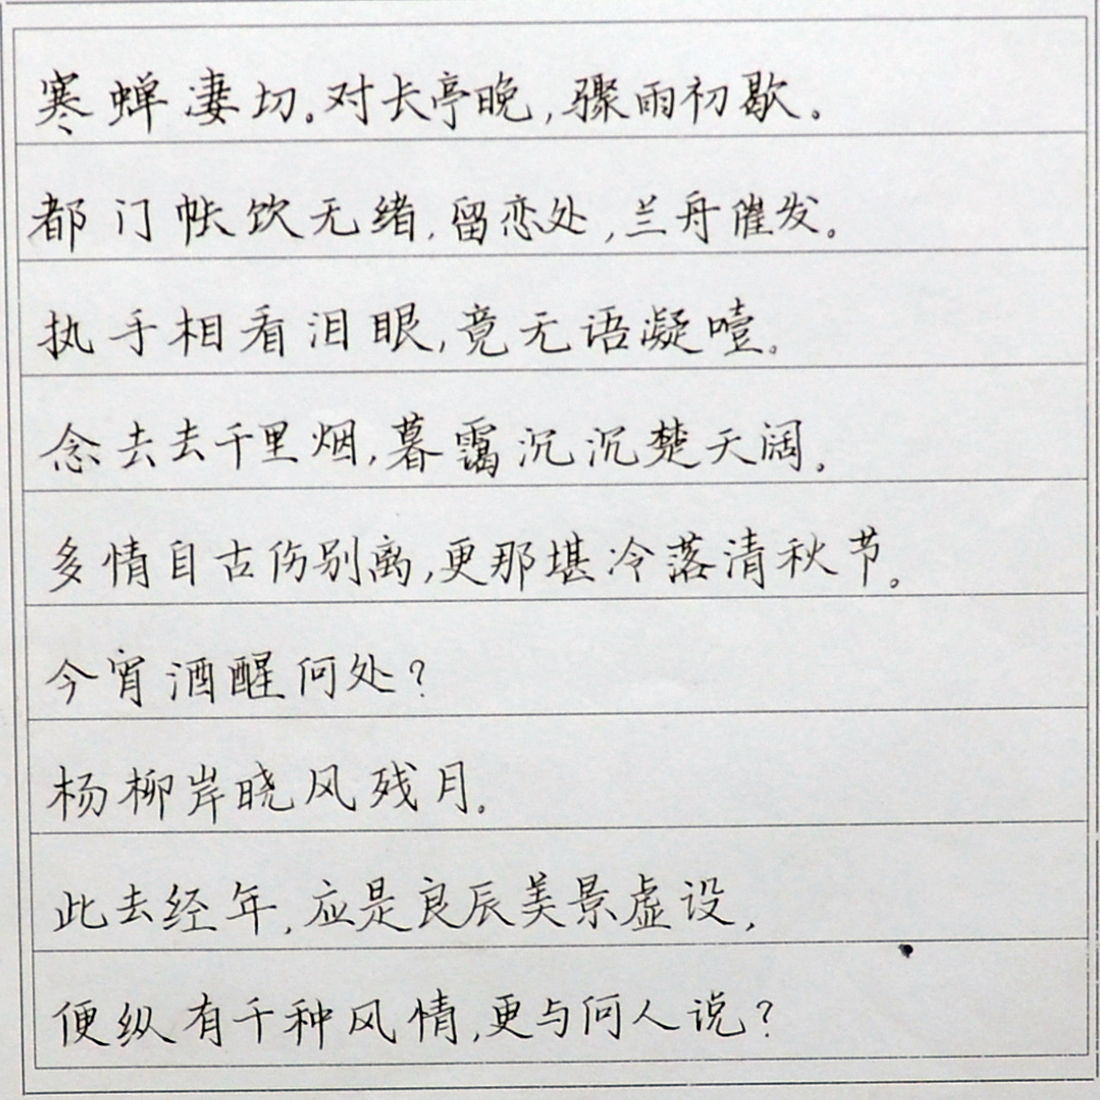 寒蝉凄切。对长亭晚,骤雨初歇。
都门帐饮无绪,留恋处,兰舟催发。
执手相看泪眼,竟无语凝噎。
念去去千里烟,暮霭沉沉楚天阔。
多情自古伤别离,更那堪冷落清秋节。
今宵酒醒何处?
杨柳岸晓风残月。
此去经年,应是良辰美景虚设,
便纵有千种风情,更与何人说?